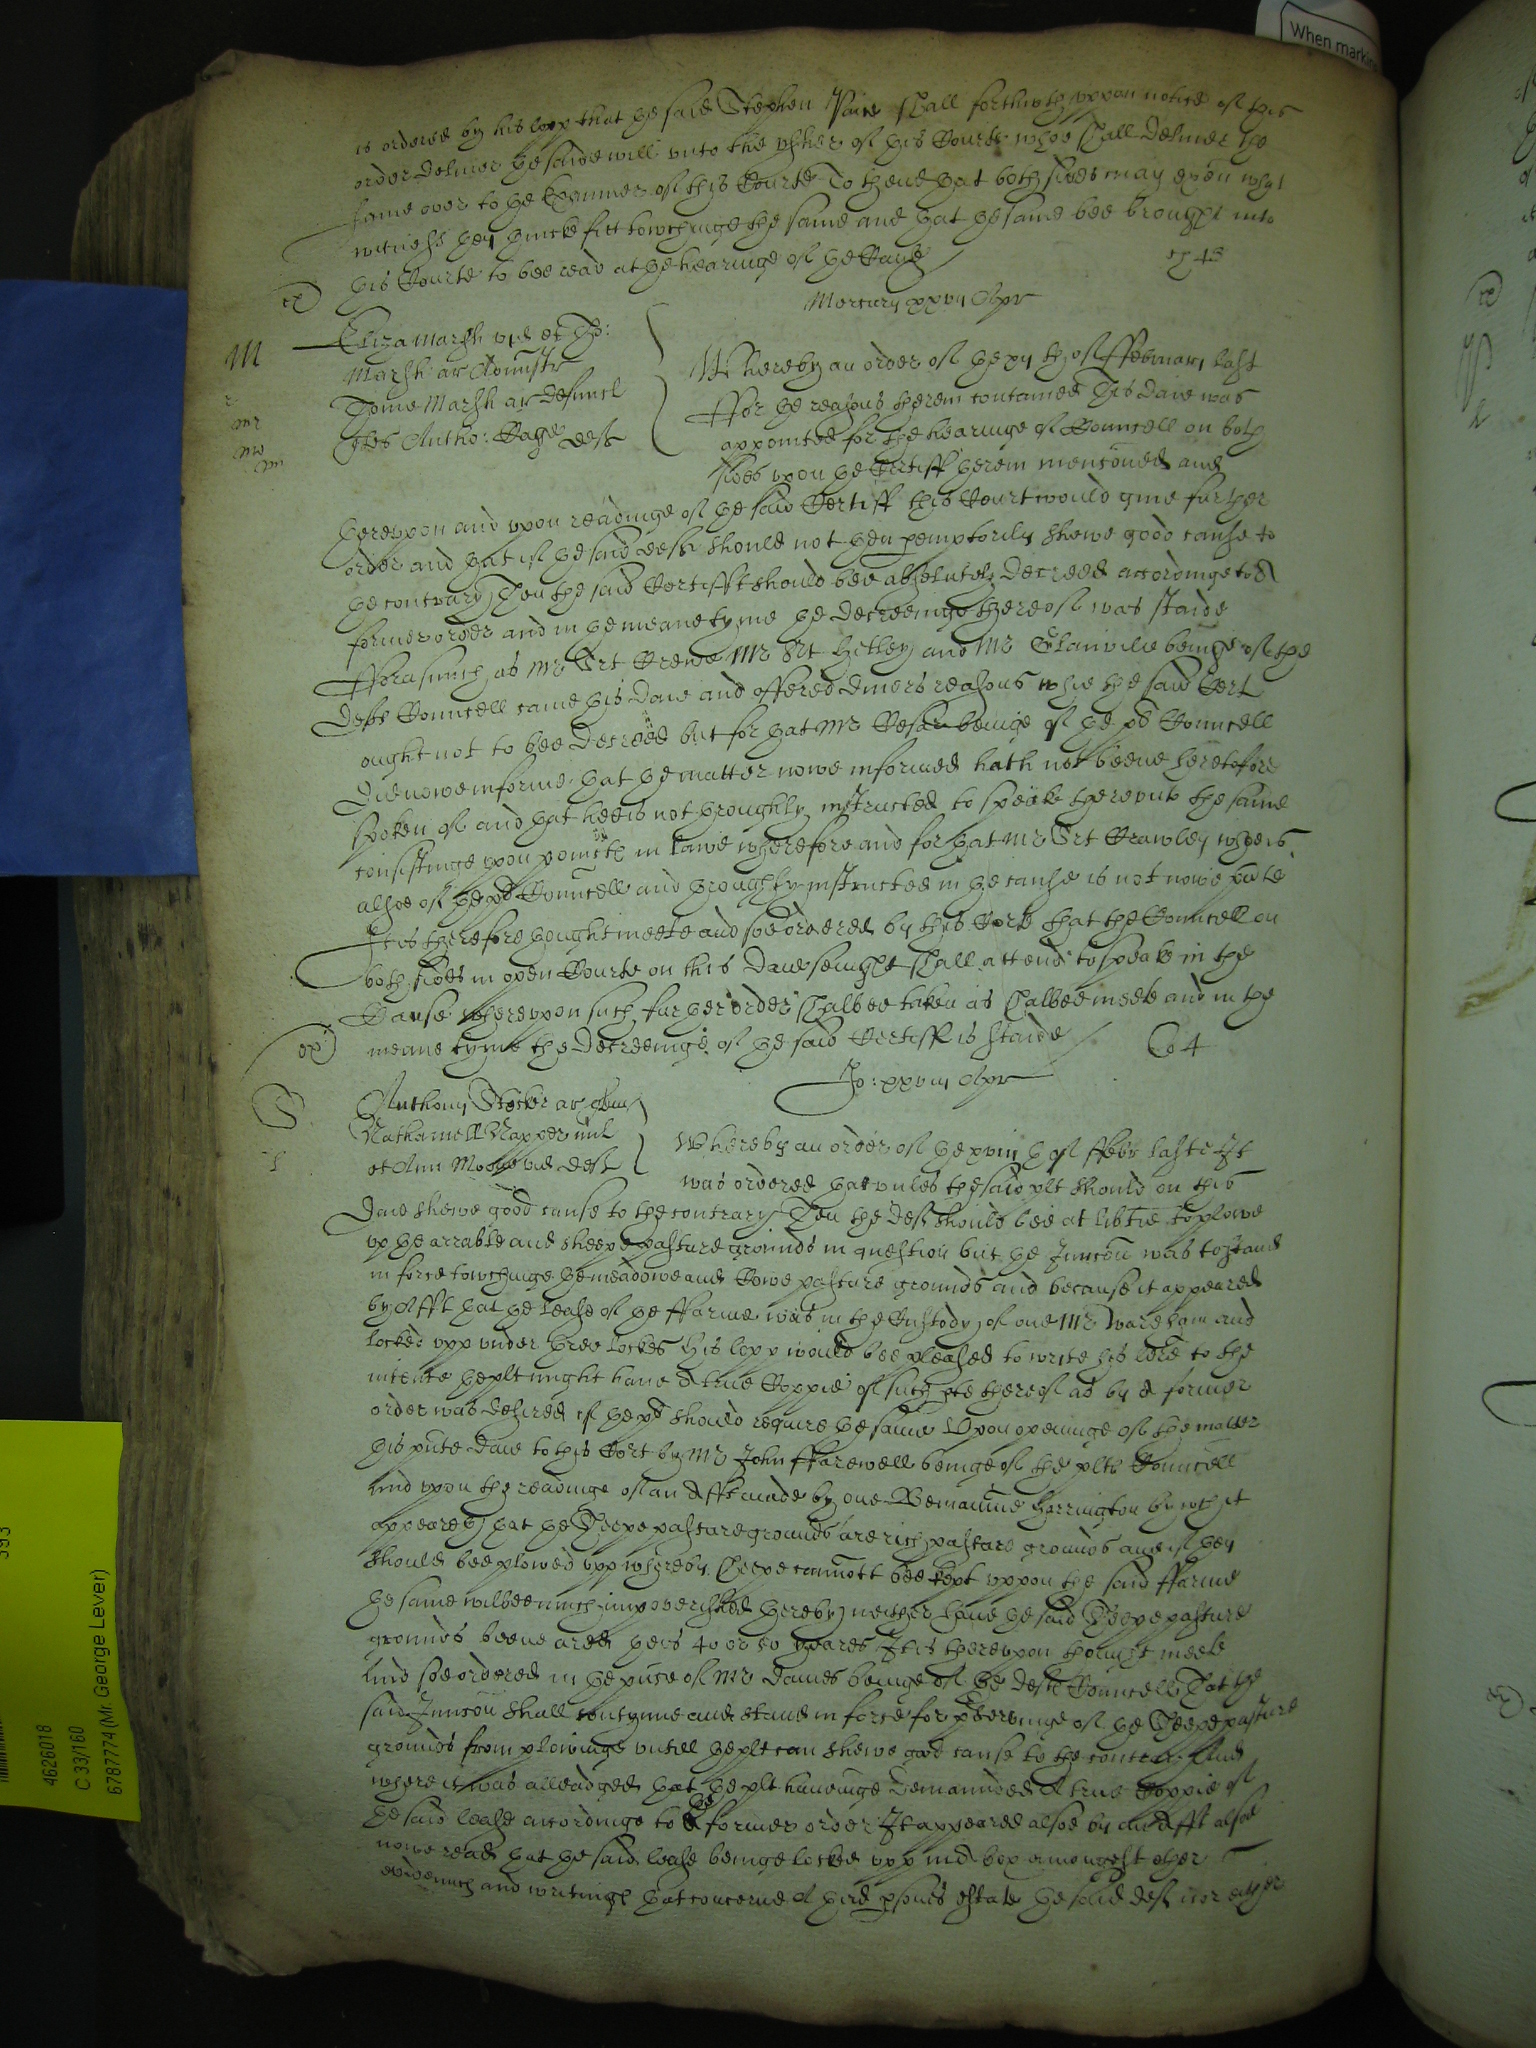 When markin
is ordered by his lopp that the said Stephen shall forthwth uppon notice of this
order deliver the saide will unto the usher of this Courte whoe shall deliver the
same over to the Exminer of this Courte To thend that both sides may exen what
witnesses they thincke fitt towchinge the same and that the same bee brought into
this Courte to bee read at the hearinge of the Cause
ex
Mercurij xxvij Apr
M
Eliza Marsh vid et Tho:
Marsh ar Administr
Thome Marsh ar defunct
Antho: Cage deft
Whereby an order of the th of ffebruary last
ffor the reasons therein contained This daie was
appointed for the hearinge of Councell on both
sides upon the Certiff therein menconed and
thereuppon and upon readinge of the said Certiff this Court would give further
order and that if the said deft should not then pemptorily shewe good cause to
the contrary Then the said Certifft should bee absolutely decreed accordinge to a
former order and in the meane tyme the decreeinge thereof was staide
fforasmuch as Mr Srt Crewe Mr Srt Hetley and Mr Glanvile beinge of the
defts Councell came this daie and offered divers reasons whie the said Cert
ought not to bee decreed but for that Mr beinge of the plt Councell
did nowe informe that the matter nowe informed hath not beene heretofore
spoken of and that hee is not throughly instructed to speake thereunto the same
consistinge upon points in lawe wherefore and for that Mr Srt Crawley whoe is
alsoe of the plts Councell and throughly instructed in the cause is not nowe pnte
It is therefore thought meete and soe ordered by this Corte that the Councell on
both sides in open Courte on this daie senight shall attend to speake in the
Cause whereuppon such further order shalbee taken as shalbee meete and in the
meane tyme the decreeinge of the said Certiff is staide
ex
Jo: xxviij Apr
S
Anthony Stocker ar quer
Nathaniell Napper mil
et Ann vid deft
Whereby an order of the xviij th of ffebr laste It
was ordered that unles the said plt should on this
daie shewe good cause to the contrary Then the deft should bee at libtie to plowe
up the arrable and sheepe pasture grounds in question but the Iniunccon was to stand
in force towchinge the meadowe and Cowe pasture grounds and because it appeared
by Afft that the lease of the ffarme was in the Custody of one Mr Wareham and
locked upp under three lockes His lopp would bee pleased to write his lre to the
intente the plt might have a true Coppie of such pte thereof as by a former
order was desired if the plt should require the same Upon openinge of the matter
this pnte daie to this Cort by Mr John ffarewell beinge of the plts Councell
And upon the readinge of an Afft made by one Beniamine Harrington by wch it
appeareth that the sheepe pasture grounds are rich pasture grounds and if they
should bee plowed upp whereby sheepe cannott bee kept uppon the said ffarme
the same wilbee much impoverished thereby neither have the said sheepe pasture
grounds beene ared theis 40 or 50 yeares It is thereupon thought meete
And soe ordered in the pnce of Mr Davies beinge of the defts Councell That the
said Iniunccon shall contynue and stand in force for pservinge of the sheepe pasture
grounds from plowinge untill the plt can shewe good cause to the contrary And
where it was alleadged that the plt haveinge demaunded A true Coppie of
the said lease accordinge to the former order It appeared alsoe by an Afft alsoe
nowe read that the said lease beinge locked upp in A box amongest other
evidences and writings that concerne A third psons estate the said deft nor either
4626018
C 33/160
6787774 (Mr. George Lever)